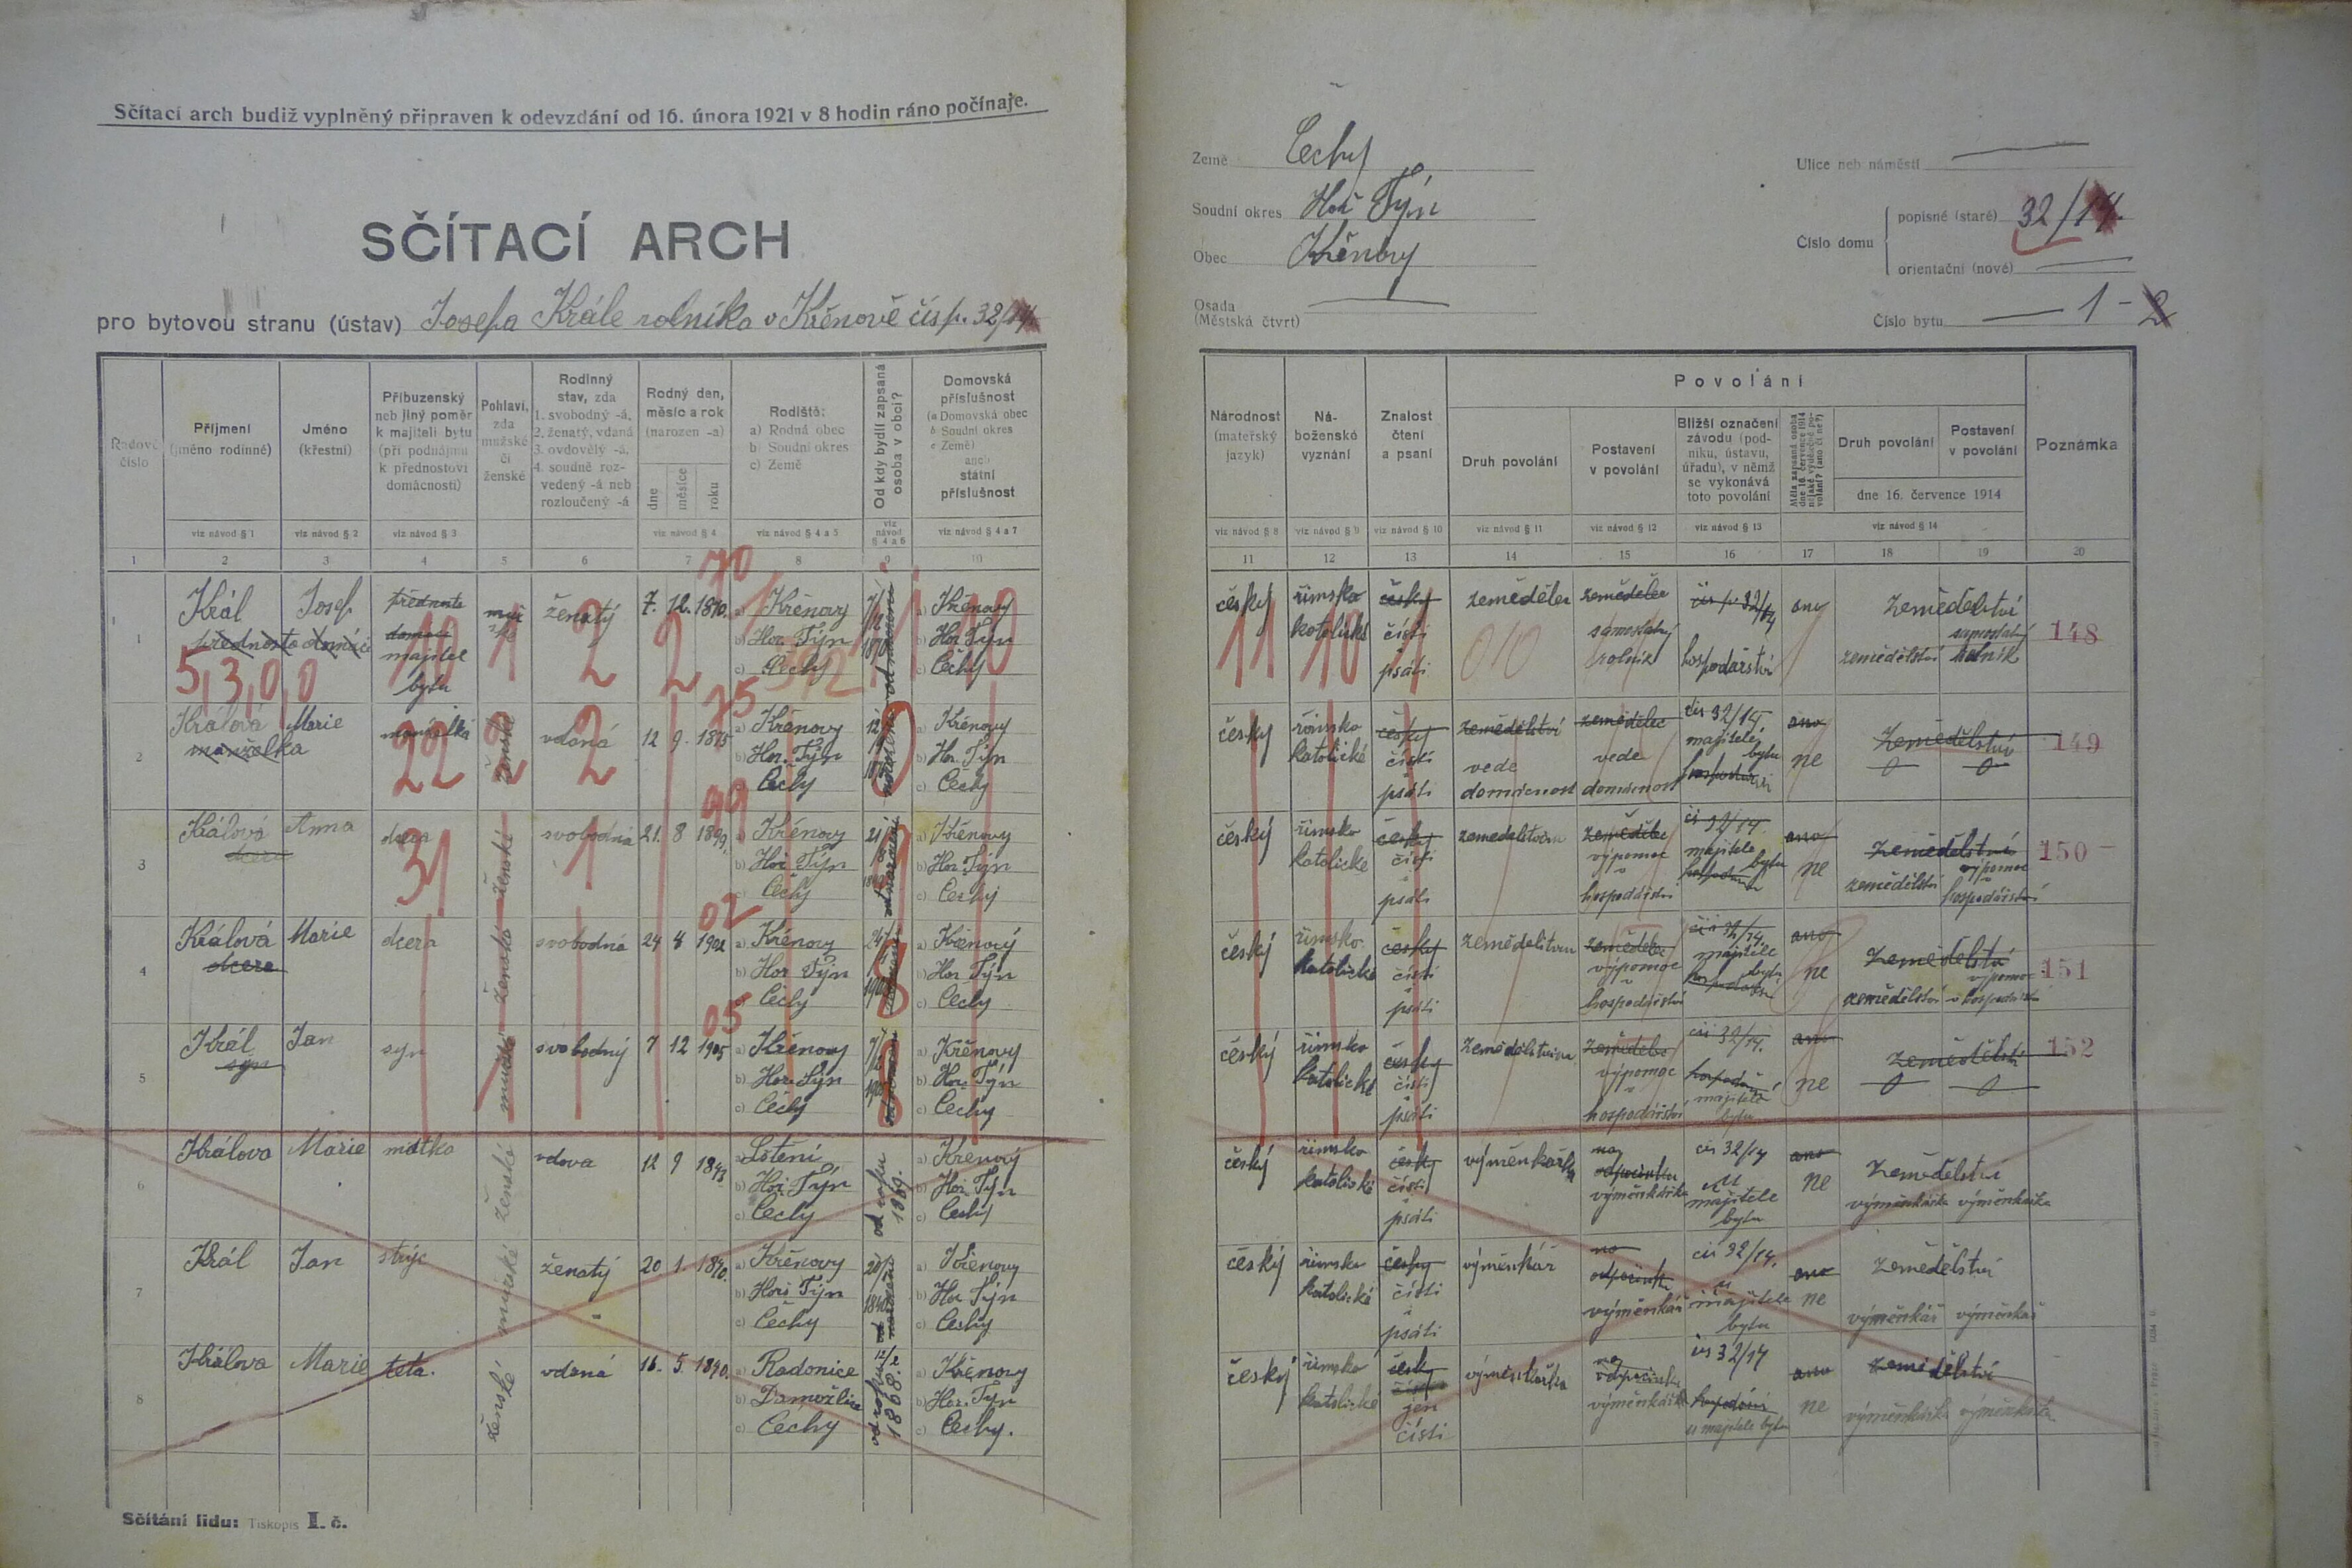 Sčítací arch budiž vyplněný připraven k odevzdání od 16. února 1921 v 8 hodin ráno počínaje.
SČÍTACÍ ARCH
pro bytovou stranu (ústav) Josefa Krále rolníka v Křenově čís p. 32/14.
Země Čechy
Soudní okres Hor Týn
Obec Křenovy
Osada
(Městská čtvrť)
Ulice neb náměstí
Číslo domu
popisné (staré) 32/14.
orientační (nové)
Číslo bytu 1 - 2
Řadové číslo
Příjmení (jméno rodinné)
Jméno (křestní)
Příbuzenský neb jiný poměr k majiteli bytu (při podnájmu k přednostovi domácnosti)
Pohlaví, zda mužské či ženské
Rodinný stav, zda 1. svobodný -á, 2. ženatý, vdaná 3. ovdovělý -á, 4. soudně rozvedený -á neb rozloučený -á
Rodný den, měsíc a rok (narozen -a)
dne měsíce roku
Rodiště: a) Rodná obec b) Soudní okres c) Země
Od kdy bydlí zapsaná osoba v obci?
Domovská příslušnost (a Domovská obec b Soudní okres c Země) aneb státní příslušnost
viz návod § 1 viz návod § 2 viz návod § 3 viz návod § 4 viz návod § 4 a 5 viz návod § 4 a 6 viz návod § 4 a 7
1 2 3 4 5 6 7 8 9 10
Národnost (mateřský jazyk)
Náboženské vyznání
Znalost čtení a psaní
Povolání
Druh povolání
Postavení v povolání
Bližší označení závodu (podniku, ústavu, úřadu), v němž se vykonává toto povolání
Měla zapsaná osoba dne 16. července 1914 nějaké výdělečné povolání? (ano či ne?)
Druh povolání
Postavení v povolání
dne 16. července 1914
Poznámka
viz návod § 8 viz návod § 9 viz návod § 10 viz návod § 11 viz návod § 12 viz návod § 13 viz návod § 14
11 12 13 14 15 16 17 18 19 20
1 Král Josef přednosta domáci majitel bytu ženatý 7. 12. 1870. a) Křenovy b) Hor. Týn c) Čechy a) Křenovy b) Hor. Týn c) Čechy
přednosta domáci
5,3,0,0 10 1 2 2 70 1 10
český římsko katolické česky čísti psáti zemědělec zemědělec samostatný rolník čís p 32/14 hospodářství ano Zemědělství zemědělství samostatný rolník 148
11 10 1 010
2 Králová Marie manželka ženské vdaná 12 9. 1875 a) Křenovy b) Hor. Týn c) Čechy a) Křenovy b) Hor. Týn c) Čechy
manželka
22 2 2 75
český římsko katolické česky čísti psáti zemědělství vede domácnost zemědělec vede domácnost čis 32/14. majitele bytu ano ne Zemědělství 0 0 149
3 Králová Anna dcera ženské svobodná 21. 8 1899. a) Křenovy b) Hor. Týn c) Čechy a) Křenovy b) Hor. Týn c) Čechy
dcera
31 1 99
český římsko katolické česky čísti psáti zemědělec výpomoc v hospodářství či 32/14. majitele bytu ano ne Zemědělství zemědělství výpomoc v hospodářství 150
4 Králová Marie dcera ženské svobodná 24 8 1902 a) Křenovy b) Hor Týn c) Čechy a) Křenový b) Hor. Týn c) Čechy
dcera
02
český římsko katolické česky čísti psáti výpomoc v hospodářství čis 32/14. majitele bytu ano ne Zemědělství zemědělství výpomoc v hospodářství 151
5 Král Jan syn mužské svobodný 7 12 1905 a) Křenovy b) Hor. Týn c) Čechy a) Křenovy b) Hor. Týn c) Čechy
syn
05
český římsko katolické česky čísti psáti výpomoc v hospodářství čis 32/14. majitele bytu ano ne Zemědělství 0 0 152
6 Králova Marie matka ženské vdova 12 9 1843 a) b) Hor. Týn c) Čechy od roku 1869. a) Křenový b) Hor. Týn c) Čechy
český římsko katolické česky čísti psáti na odpočinku výměnkářka čis 32/14 u majitele bytu ano ne Zemědělství výměnkářka výměnkářka
7 Král Jan strýc mužské ženatý 20 1. 1840. a) Křenovy b) Hor. Týn c) Čechy a) Křenovy b) Hor Týn c) Čechy
český římsko katolické česky čísti psáti výměnkář na odpočinku výměnkář čis 32/14. u majitele bytu ano ne Zemědělství výměnkář výměnkář
8 Králova Marie teta. ženské vdaná 16. 5. 1840. a) Radonice b) Domažlice c) Čechy od roku 1868. a) Křenovy b) Hor. Týn c) Čechy.
český římsko katolické česky čísti jen čísti výměnkářka na odpočinku výměnkářka čis 32/14 u majitele bytu ano ne Zemědělství výměnkářka výměnkářka
Sčítání lidu: Tiskopis I. č.